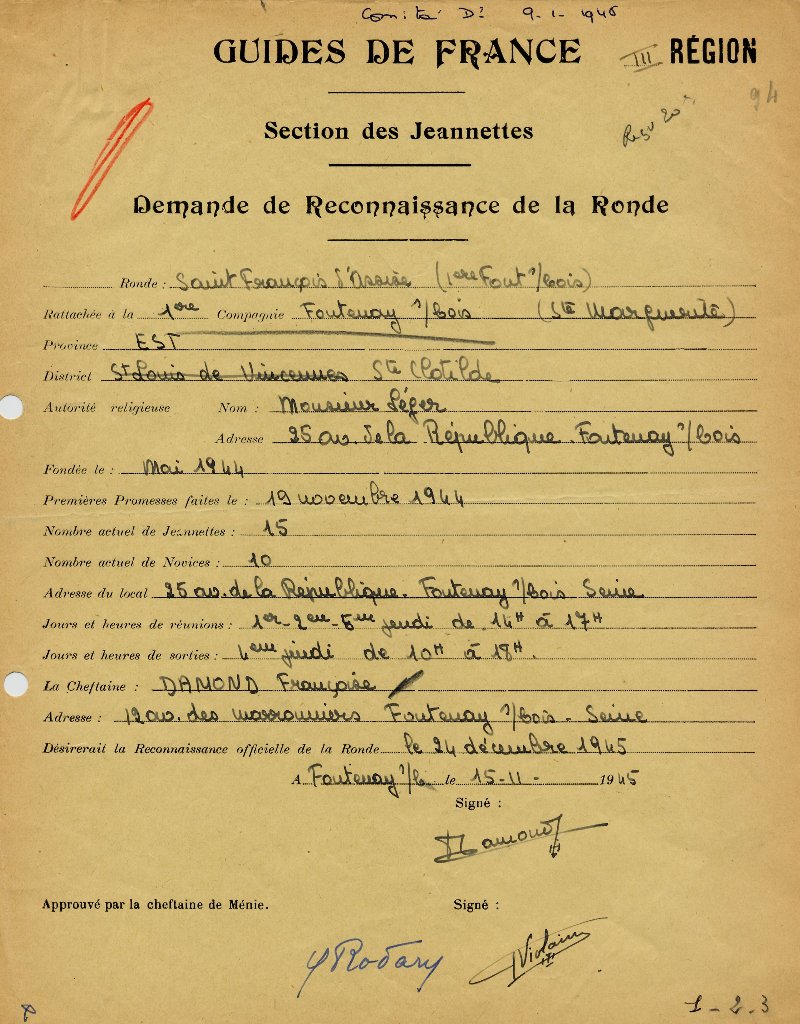 Comité Dr 9-1-1946
GUIDES DE FRANCE III RÉGION
94
Section des Jeannettes
Reçu 20
Demande de Reconnaissance de la Ronde
Ronde : Saint François d'Assise (1ere Font s/bois)
Rattachée à la 1ere Compagnie Fontenay s/bois (Ste Marguerite)
Province EST
District St Louis de Vincennes Ste Clotilde
Autorité religieuse Nom : Monsieur Léger
Adresse 25 av. de la République. Fontenay s/bois
Fondée le : Mai 1944
Premières Promesses faites le : 19 novembre 1944
Nombre actuel de Jeannettes : 15
Nombre actuel de Novices : 10
Adresse du local 25 av. de la République. Fontenay s/bois Seine
Jours et heures de réunions : 1er-2em-5me jeudi de 14H à 17H
Jours et heures de sorties : 4eme jeudi de 10H à 18H.
La Cheftaine : DAMOND Françoise
Adresse : 12 av. des marronniers Fontenay s/bois - Seine
Désirerait la Reconnaissance officielle de la Ronde le 24 décembre 1945
A Fontenay s/b. le 15-11- 1945
Signé :
Damond
Approuvé par la cheftaine de Ménie. Signé :
Rodary Violaine
1-2-3